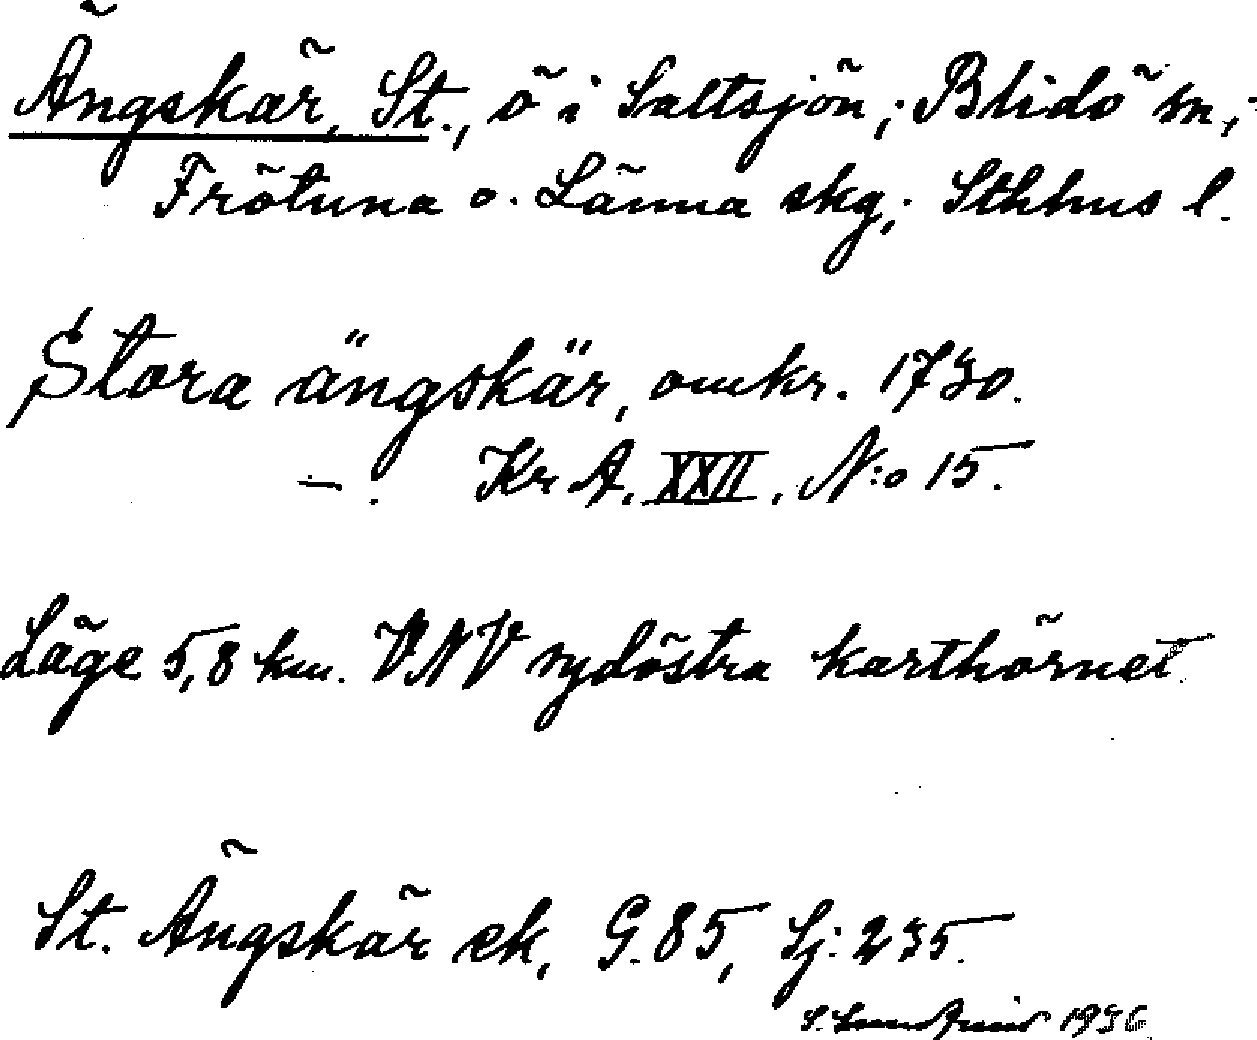 Ängskär, St., ö i Saltsjön; Blidö sn,;
Frötuna o. Länna skg; Sthhus l.
Stora ängskär, omkr. 1730.
— . Kr A. XXII. N:o 15.
Läge 5,8 km. VNV sydöstra karthörnet.
St. Ängskär ek, G. 85, Sj: 235.
S. 1936